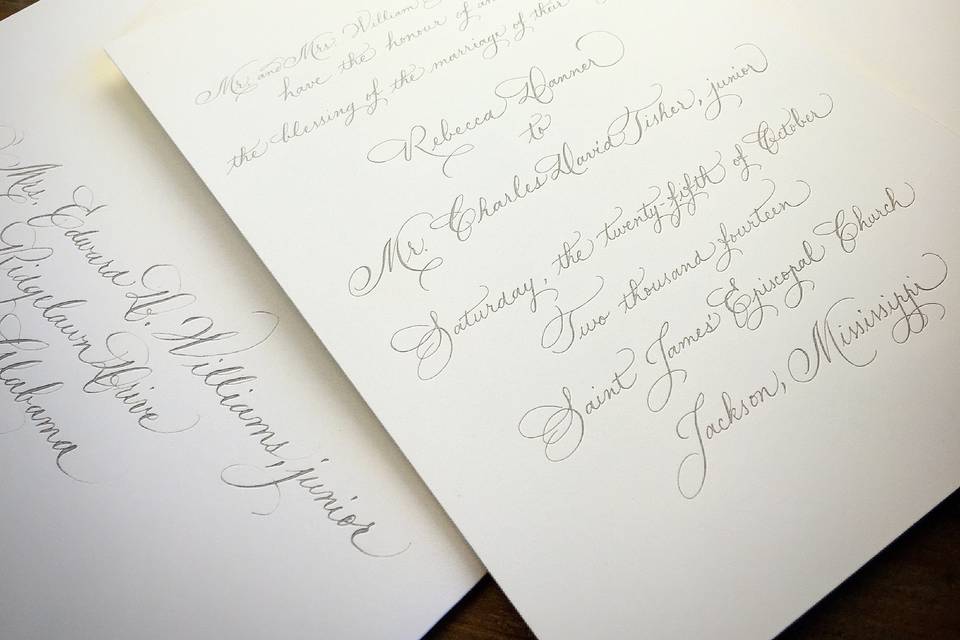 Mr. and Mrs. William
have the honour of
the blessing of the marriage of their
Rebecca Danner
to
Mr. Charles David Tisher, junior
Saturday, the twenty-fifth of October
Two thousand fourteen
Saint James' Episcopal Church
Jackson, Mississippi
Mrs. Edward D. Williams, junior
Ridgelawn Drive
Alabama